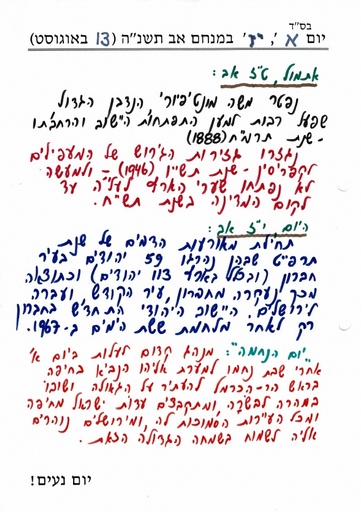 בס"ד
יום א', י"ז' במנחם אב תשנ"ה (13 באוגוסט)
אתמול, ט"ז אב:
נפטר משה מונטיפיורי, הנדבן הגדול
שפעל רבות למען התפתחות הישוב והרחבתו
- שנת תרמ"ח (1888)
נגזרו גזירות הגירוש של המעפילים
לקפריסין - שנת תש"ו (1946) - ולמעשה
לא נפתחו שערי הארץ לעליה עד
לקום המדינה בשנת תש"ח.
היום, י"ז אב:
תחילת מאורעות הדמים של שנת
תרפ"ט שבהן נהרגו 59 יהודים בעיר
חברון (ובכלל בארץ 133 יהודים) וכתוצאה
מכך נעקרה מחברון, עיר הקודש, ועברה
לירושלים. הישוב היהודי התחדש בחברון
רק לאחר מלחמת ששת הימים ב-1967.
"יום הנחמה": מנהג קדום לעלות ביום א'
אחרי שבת נחמו למערת אליהו הנביא בחיפה
בראש הר-הכרמל להעתיר על הגאולה ושובו
במהרה לבשרה, ומתקבצים עדות ישראל מחיפה
ומכל העיירות הסמוכות לה, ומירושלים נוהרים
אליה לשמוח בשמחה הגדולה הזאת.
יום נעים!